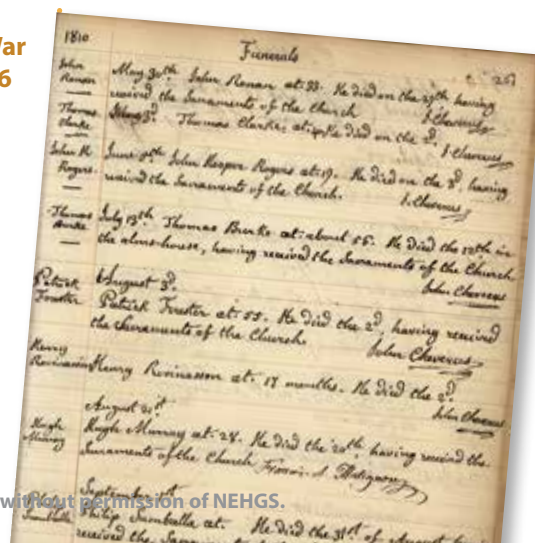 War
6
1810
Funerals
John
Ronan
May 30th John Ronan at. 33. He died on the 29th having
received the Sacraments of the Church
J. Cheverus
Thomas
Clarke
3d. Thomas Clarke, at. He died on the 2d.
J. Cheverus
John H.
Rogers
June John Rogers at. 19. He died on the 3d, having
received the Sacraments of the Church.
J. Cheverus
Thomas
Burke
July 13th Thomas Burke at. about 55. He died the 12th in
the alms-house, having received the Sacraments of the Church
John Cheverus
Patrick
Forster
August 3d.
Patrick Forster at. 55. He died the 2d, having received
the Sacraments of the Church.
John Cheverus
Henry
Henry at. 17 months. He died the 2d
John Cheverus
August 21st
Hugh
Murray
Hugh Murray at. 28. He died the 20th, having received the
Sacraments of the Church Francis A. Matignon
without permission of NEHGS.
September
Philip at. He died the 31st of August
received the